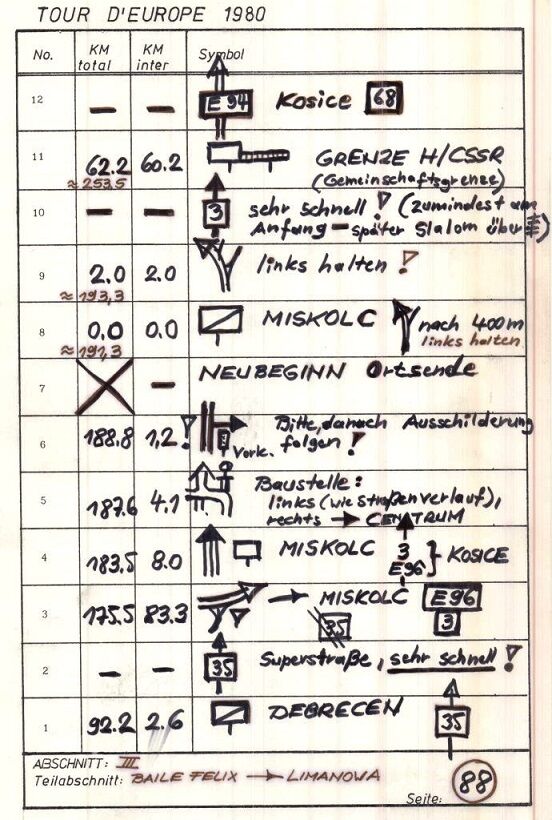 TOUR D'EUROPE 1980
No. KM total KM inter Symbol
12 — — E 94 Kosice 68
11 62.2 60.2 GRENZE H/CSSR
≈253,5 (Gemeinschaftsgrenze)
10 — — 3 sehr schnell! (zumindest am
Anfang — später Slalom über
9 2.0 2.0 links halten!
≈193,3
8 0,0 0.0 MISKOLC nach 400m
≈191,3 links halten
7 — NEUBEGINN Ortsende
6 188.8 1,2! Bitte, danach Ausschilderung
Vork. folgen!
5 187.6 4.1 Baustelle:
links (wie Straßenverlauf),
rechts → CENTRUM
4 183.5 8.0 MISKOLC 3 E96 } KOSICE
3 175.5 83.3 → MISKOLC E96
35 3
2 — — 35 Superstraße, sehr schnell!
1 92.2 2.6 DEBRECEN 35
ABSCHNITT: III
Teilabschnitt: BAILE FELIX → LIMANOWA
Seite: 88